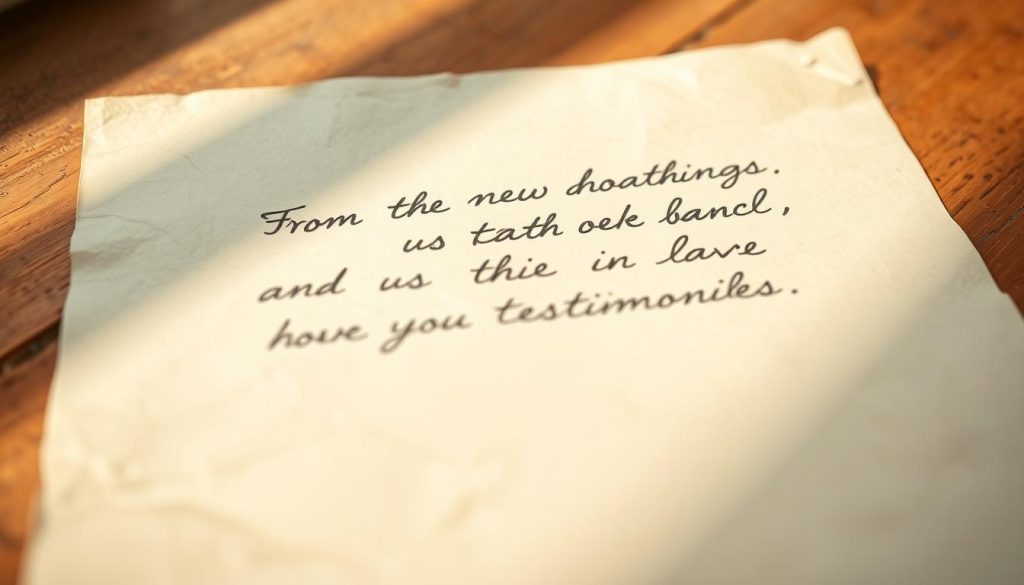 From the new doathings.
us tath oek bancl,
and us thie in lave
hove you testiimoniles.